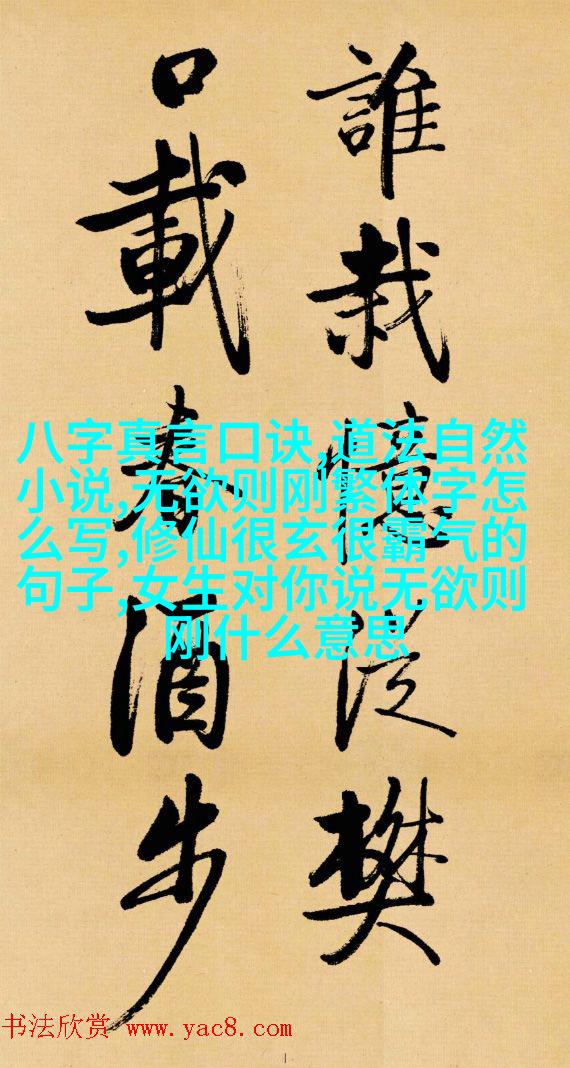 誰栽憶從樊
口載春酒步
八字真言口诀,道法自然
小说,无欲则刚繁体字怎
么写,修仙很玄很霸气的
句子,女生对你说无欲则
刚什么意思
书法欣赏 www.yac8.com